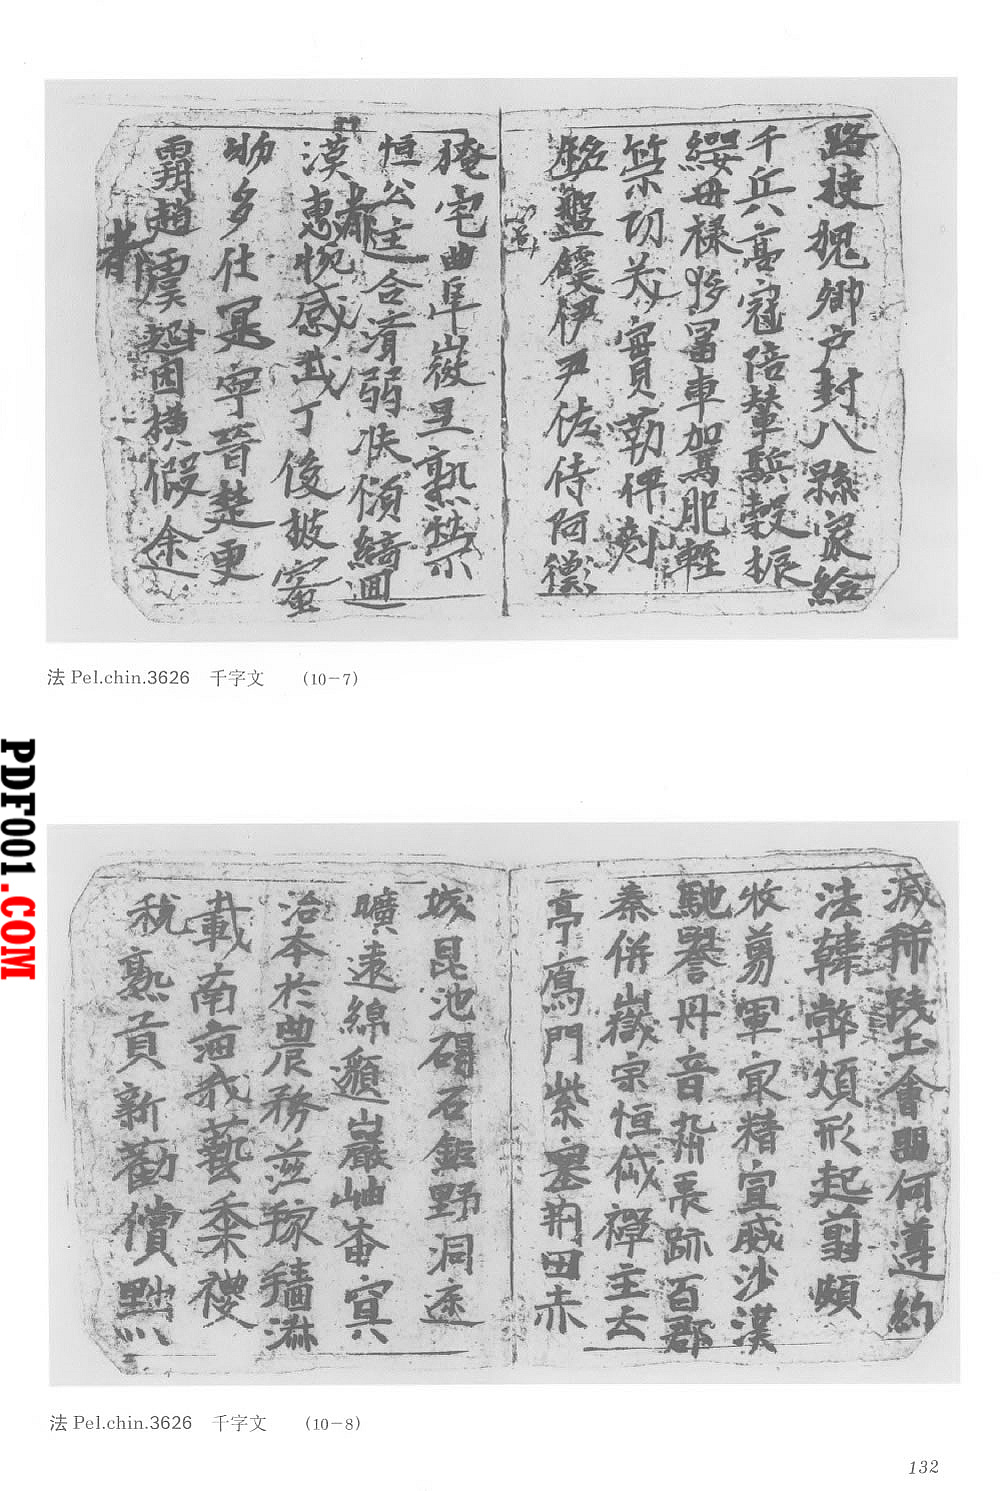 路挾槐卿户封八縣家給
千兵高冠陪輦驅轂振
纓世禄侈冨車加駕肥輕
策功茂實勒俾刻
銘盤磎伊尹佐侍阿衡
奄宅曲阜微旦熟營
恒公匡合濟弱伏傾綺迴
漢惠悦感武丁俊披蜜
勿多仕寔寧晉楚更
霸趙虞起困横假途
都
都
法 Pel.chin.3626 千字文 (10－7)
滅稀踐土會盟何遵約
法韓弊煩形起翦頗
牧剪軍家精宣威沙漠
馳譽丹音九州禹跡百郡
秦併嶽宗恒岱禪主云
亭鴈門紫塞荆田赤
城昆池碣石鉅野洞庭
曠遠綿邈巖岫杳冥
治本於農務兹稼穡淋
載南畝我藝黍稷
税熟貢新勸償黜
法 Pel.chin.3626 千字文 (10－8)
132
PDF001.COM